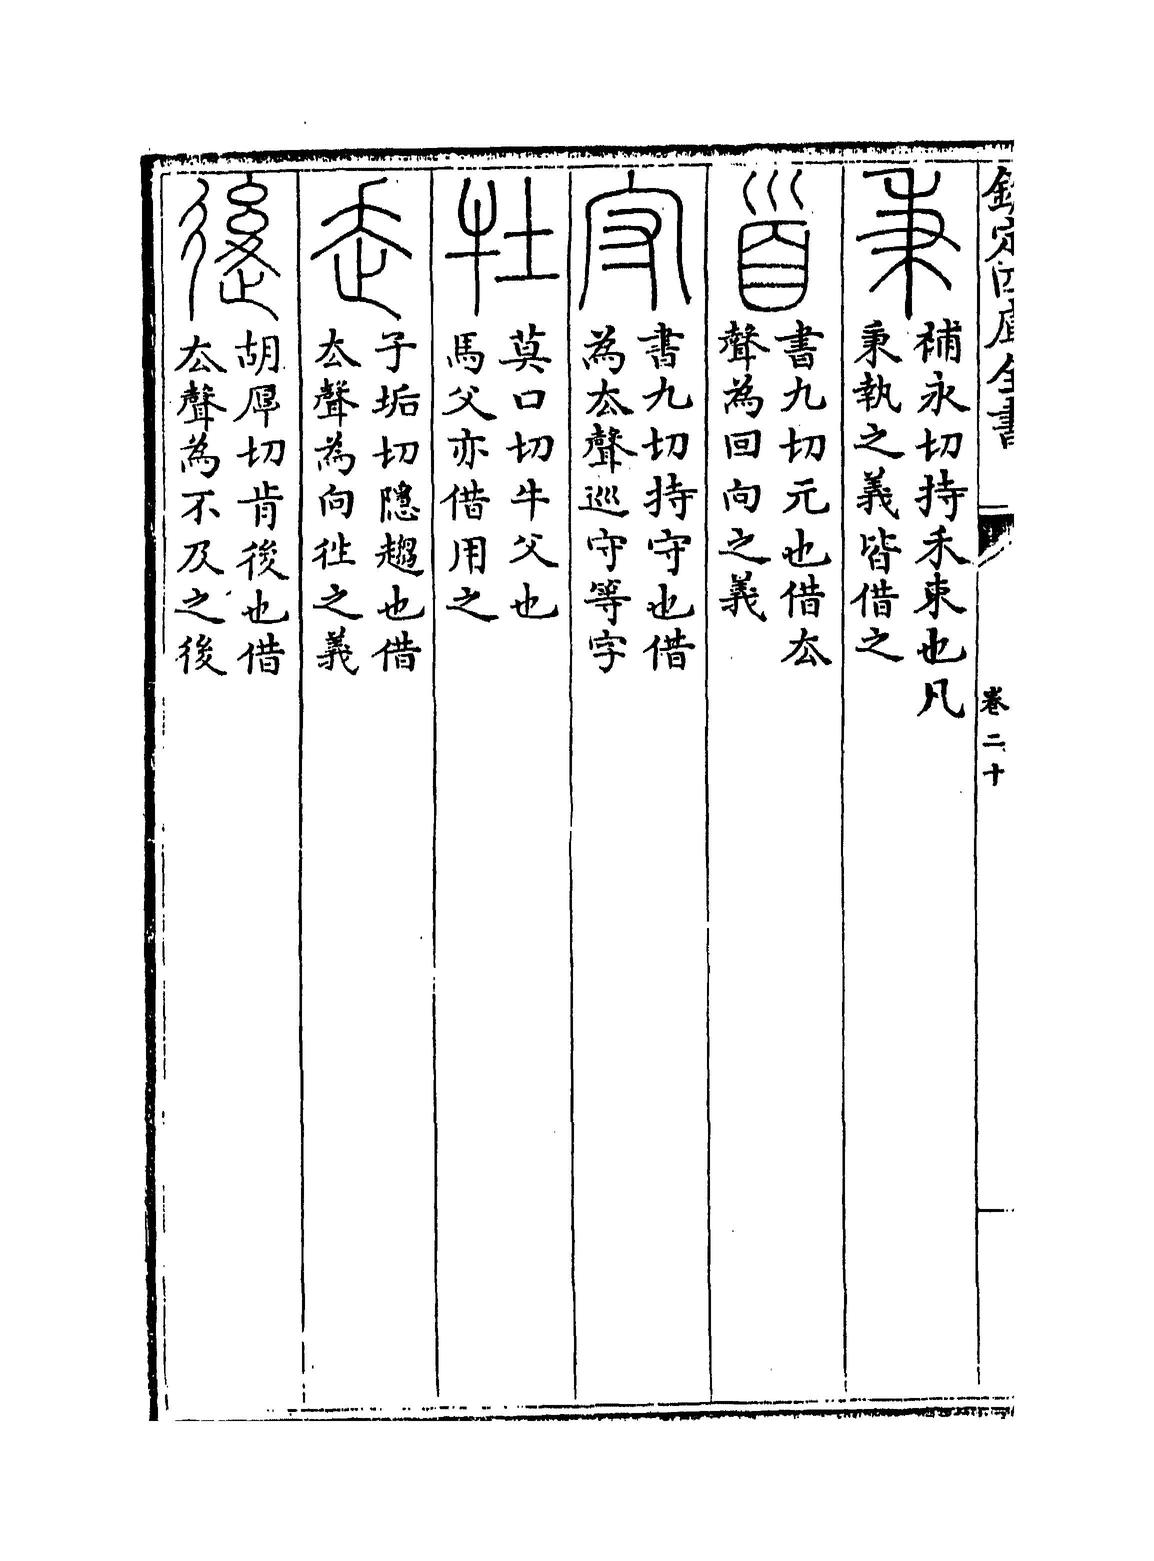 欽定四庫全書
卷二十
秉
補永切持禾束也凡
秉執之義皆借之
𩠐
書九切元也借厺
聲為回向之義
守
書九切持守也借
為厺聲巡守等字
牡
莫口切牛父也
馬父亦借用之
走
子垢切隱趨也借
厺聲為向徃之義
後
胡厚切肯後也借
厺聲為不及之後